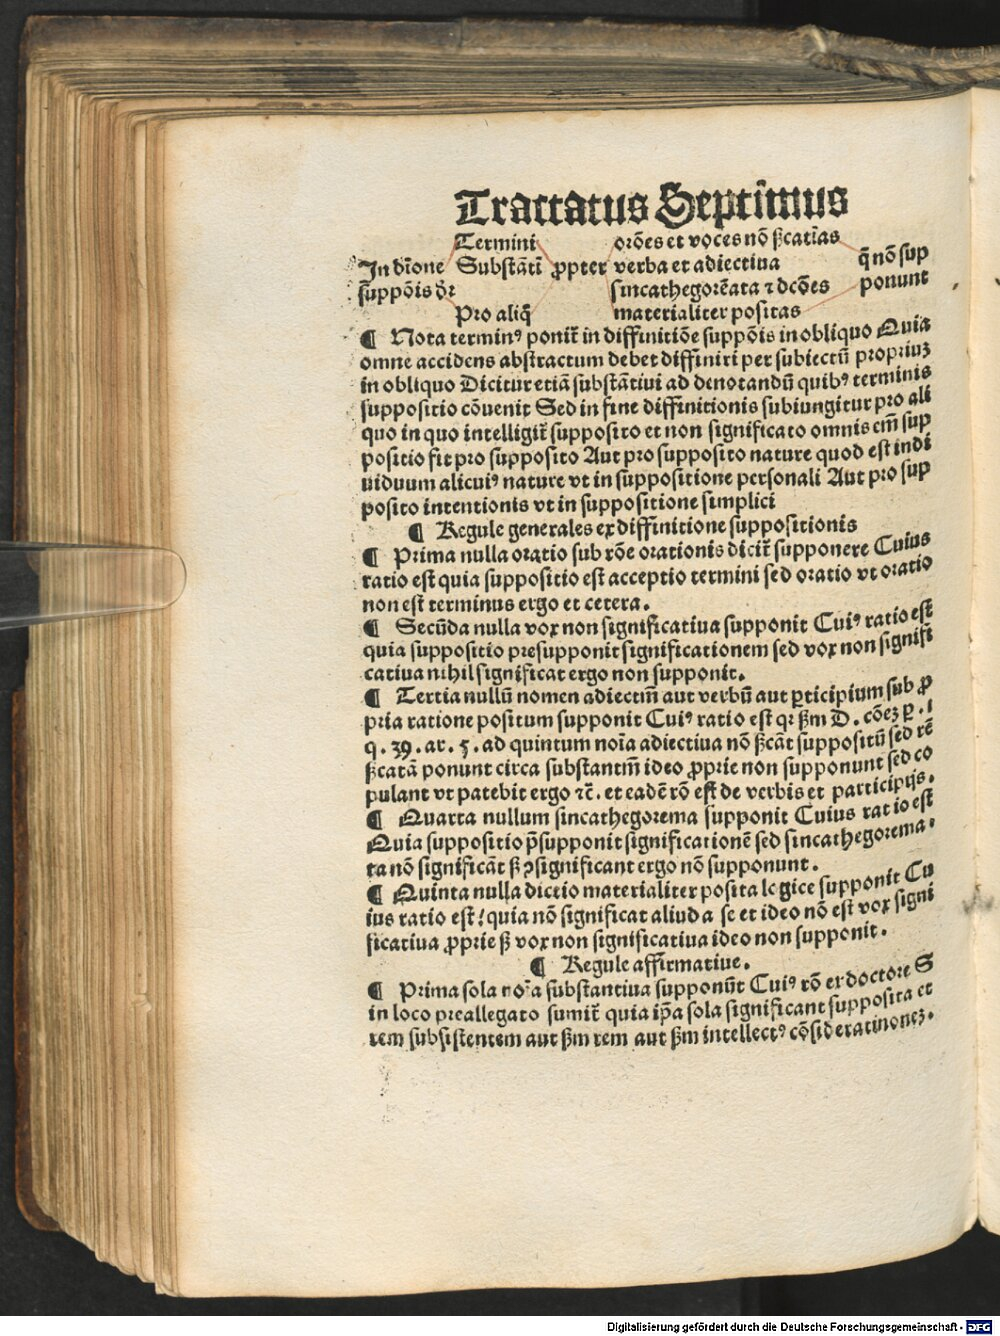 Tractatus Septimus
Termini orōes et voces nō ẜcatīas
In dīone Substātī ꝓpter verba et adiectiua q̄ nō sup
suppōis dr̄ sincathegorēata ⁊ dcōes ponunt
Pro aliq̄ materialiter positas
¶ Nota terminꝰ ponit̄ in diffinitiōe suppōis in obliquo Quia
omne accidens abstractum debet diffiniri per subiectū propriuꝫ
in obliquo Dicitur etiā substātiui ad denotandū quibꝰ terminis
suppositio cōuenit Sed in fine diffinitionis subiungitur pro ali
quo in quo intelligit̄ supposito et non significato omnis em̄ sup
positio fit pro supposito Aut pro supposito nature quod est indi
uiduum alicuiꝰ nature vt in suppositione personali Aut pro sup
posito intentionis vt in suppositione simplici
¶ Regule generales ex diffinitione suppositionis
¶ Prima nulla oratio sub rōe orationis dicit̄ supponere Cuius
ratio est quia suppositio est acceptio termini sed oratio vt oratio
non est terminus ergo et cetera.
¶ Secūda nulla vox non significatiua supponit Cuiꝰ ratio est
quia suppositio presupponit significationem sed vox non signifi
catiua nihil significat ergo non supponit.
¶ Tertia nullū nomen adiectm̄ aut verbū aut ꝑticipium sub ꝓ
pria ratione positum supponit Cuiꝰ ratio est qꝛ ẜm D. cōeꝫ ꝑ. i
q. 39. ar. 5. ad quintum noīa adiectiua nō ẜcāt suppositū sed rē
ẜcatā ponunt circa substantm̄ ideo ꝓprie non supponunt sed co
pulant vt patebit ergo ⁊c̄. et eadē rō est de verbis et participijs.
¶ Quarta nullum sincathegorema supponit Cuius ratio est
Quia suppositio p̄supponit significationē sed sincathegorema⸗
ta nō significāt ẜ ꝯsignificant ergo nō supponunt.
¶ Quinta nulla dictio materialiter posita lc gice supponit Cu
ius ratio est: quia nō significat aliud a se et ideo nō est vox signi
ficatiua ꝓprie ẜ vox non significatiua ideo non supponit.
¶ Regule affirmatiue.
¶ Prima sola noīa substantiua supponūt Cuiꝰ rō ex doctore S
in loco preallegato sumit̄ quia ip̄a sola significant supposita et
rem subsistentem aut ẜm rem aut ẜm intellectꝰ cōsideratinoneꝫ.
Digitalisierung gefördert durch die Deutsche Forschungsgemeinschaft - DFG